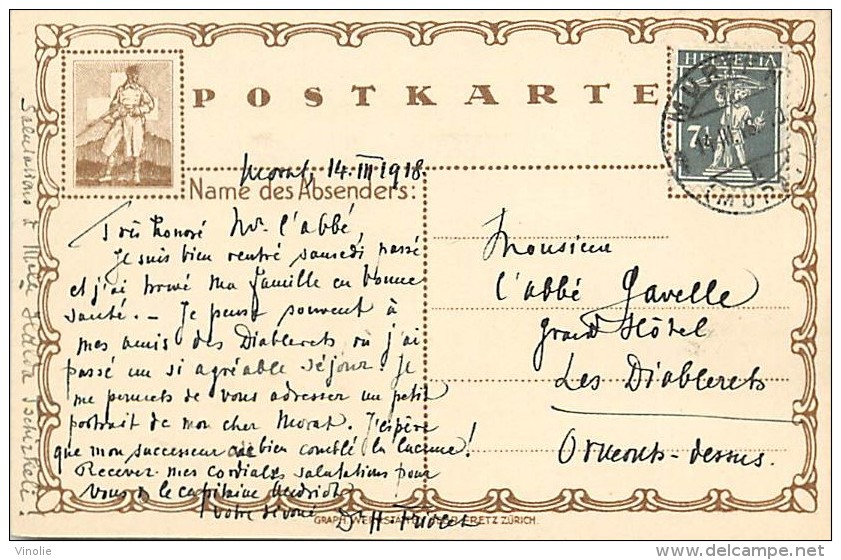 POSTKARTE
HELVETIA
7½
Name des Absenders:
Morat, 14.III 1918.
Très honoré Mr. l'abbé,
Je suis bien rentré samedi passé
et j'ai trouvé ma famille en bonne
santé. — Je pense souvent à
mes amis des Diablerets où j'ai
passé un si agréable séjour. Je
me permets de vous adresser un petit
portrait de mon cher Morat. J'espère
que mon successeur a bien comblé la lacune!
Recevez mes cordiales salutations pour
vous & le capitaine
votre dévoué Dr H.
Monsieur
l'abbé Gavelle
Grand Hôtel
Les Diablerets
Ormonts-dessus.
Salutations à Mlle
GRAPH. WERKSTÄTTEN FRETZ ZÜRICH.
Vinolie
http://www.delcampe.net